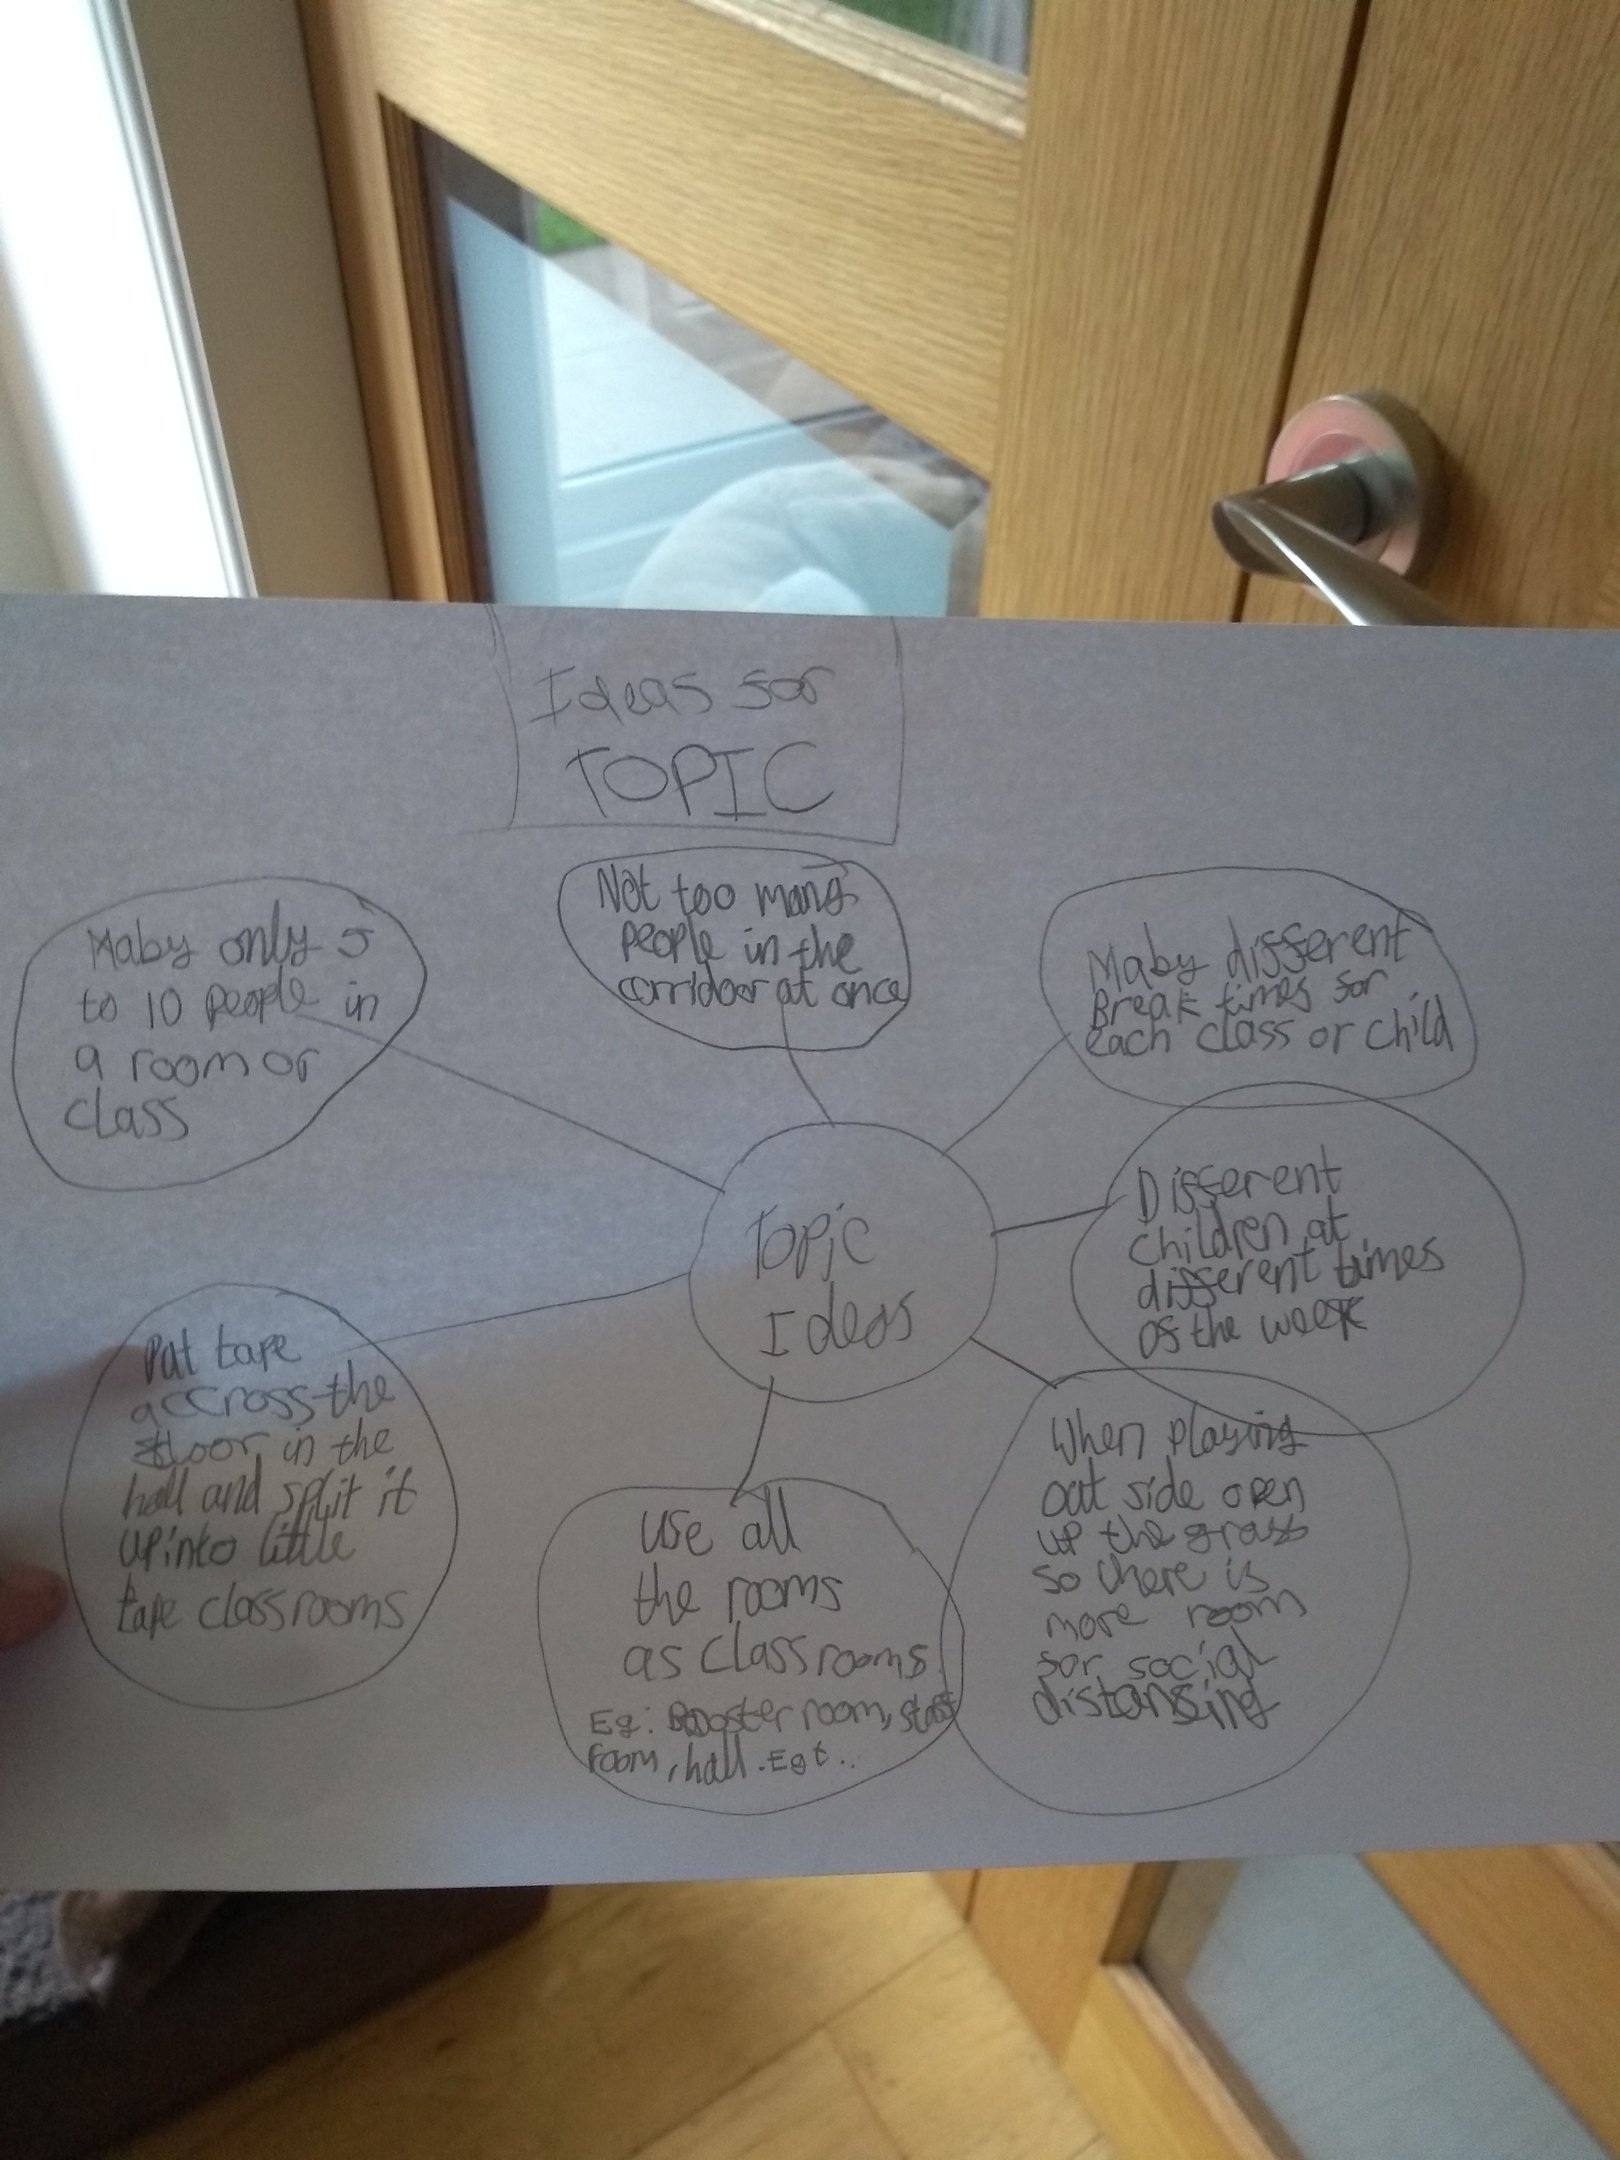 Ideas for
TOPIC
Maby only 5
to 10 people in
a room or
class
Not too many
people in the
corridoor at once
Maby different
Break times for
each class or child
Topic
Ideas
Different
children at
different times
of the week
When playing
out side open
up the grass
so there is
more room
for social
distansing
Use all
the rooms
as classrooms
Eg: Booster room, staff
room, hall. Egt..
Put tape
accross the
floor in the
hall and split it
up into little
tape classrooms